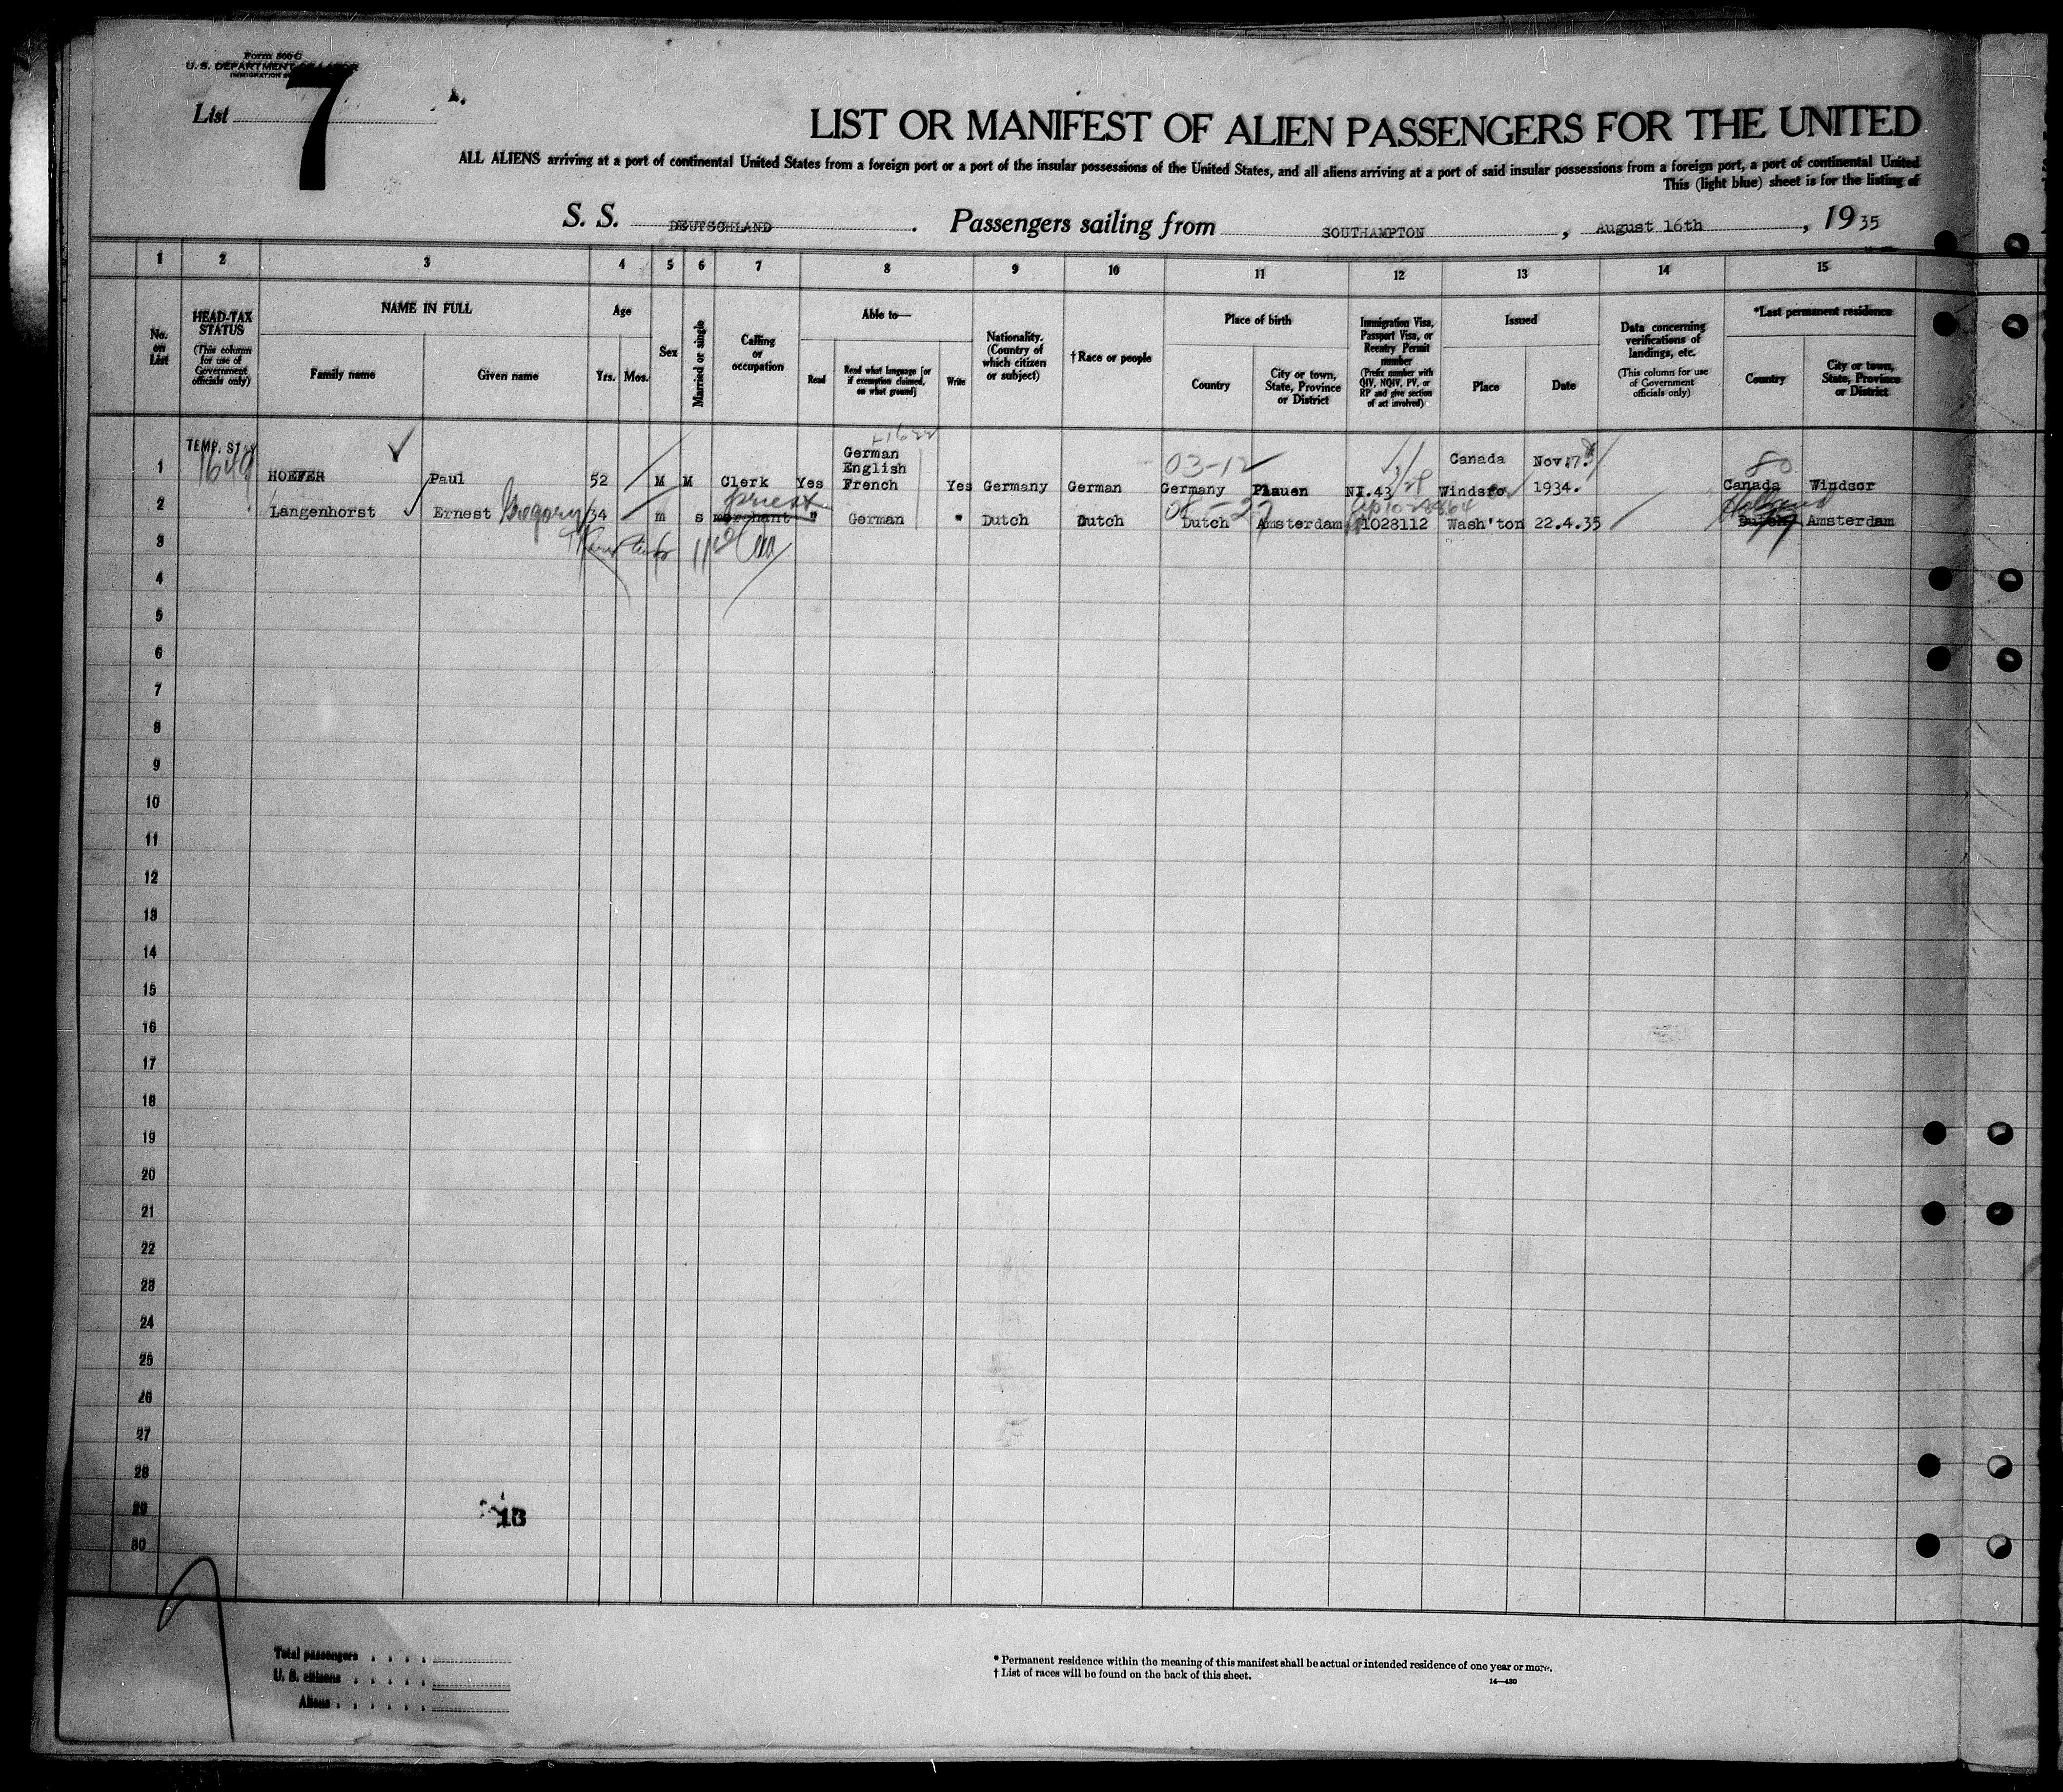 Form 500 C
U. S. DEPARTMENT OF LABOR
List 7
LIST OR MANIFEST OF ALIEN PASSENGERS FOR THE UNITED
ALL ALIENS arriving at a port of continental United States from a foreign port or a port of the insular possessions of the United States, and all aliens arriving at a port of said insular possessions from a foreign port, a port of continental United
This (light blue) sheet is for the listing of
S. S. DEUTSCHLAND. Passengers sailing from SOUTHAMPTON, August 16th, 1935
1 2 3 4 5 6 7 8 9 10 11 12 13 14 15
No. on List
HEAD-TAX STATUS
(This column for use of Government officials only)
NAME IN FULL
Family name
Given name
Age
Yrs. Mos.
Sex
Married or single
Calling or occupation
Able to—
Read
Read what language [or if exemption claimed, on what ground]
Write
Nationality. (Country of which citizen or subject)
†Race or people
Place of birth
Country
City or town, State, Province or District
Immigration Visa, Passport Visa, or Reentry Permit number
(Prefix number with QIV, NQIV, PV, or RP and give section of act involved)
Issued
Place
Date
Data concerning verifications of landings, etc.
(This column for use of Government officials only)
*Last permanent residence
Country
City or town, State, Province or District
TEMP. STAY
1649
03-12
80
1 HOEFER Paul 52 M M Clerk Yes German English French Yes Germany German Germany Plauen NI.43 Canada Windsro Nov.17. 1934. Canada Windsor
priest
Holland
2 Langenhorst Ernest Gregory 34 m s merchant " German " Dutch Dutch Dutch Amsterdam 1028112 Wash'ton 22.4.35 Dutch Amsterdam
3
4
5
6
7
8
9
10
11
12
13
14
15
16
17
18
19
20
21
22
23
24
25
26
27
28
29
30
13
Total passengers
U. S. citizens
Aliens
* Permanent residence within the meaning of this manifest shall be actual or intended residence of one year or more.
† List of races will be found on the back of this sheet.
14—430